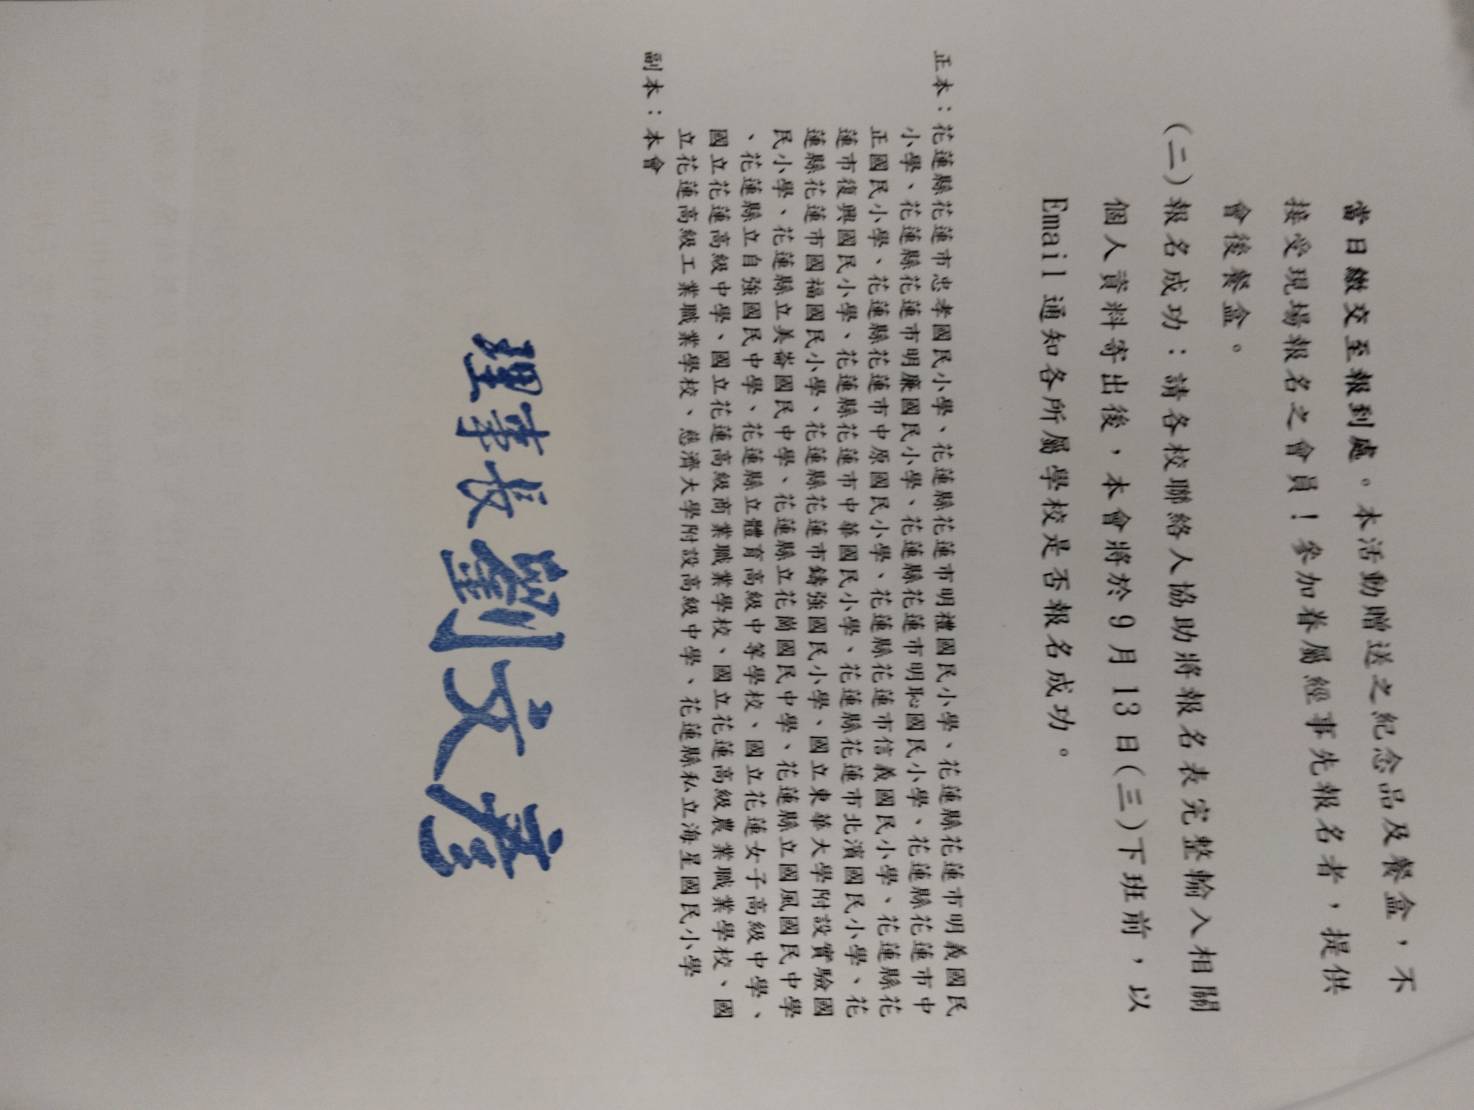 當日繳交至報到處。本活動贈送之紀念品及餐盒，不
接受現場報名之會員！參加眷屬經事先報名者，提供
會後餐盒。
(二)報名成功：請各校聯絡人協助將報名表完整輸入相關
個人資料寄出後，本會將於9月13日(三)下班前，以
Email通知各所屬學校是否報名成功。
正本：花蓮縣花蓮市忠孝國民小學、花蓮縣花蓮市明禮國民小學、花蓮縣花蓮市明義國民
小學、花蓮縣花蓮市明廉國民小學、花蓮縣花蓮市明恥國民小學、花蓮縣花蓮市中
正國民小學、花蓮縣花蓮市中原國民小學、花蓮縣花蓮市信義國民小學、花蓮縣花
蓮市復興國民小學、花蓮縣花蓮市中華國民小學、花蓮縣花蓮市北濱國民小學、花
蓮縣花蓮市國福國民小學、花蓮縣花蓮市鑄強國民小學、國立東華大學附設實驗國
民小學、花蓮縣立美崙國民中學、花蓮縣立花崗國民中學、花蓮縣立國風國民中學
、花蓮縣立自強國民中學、花蓮縣立體育高級中等學校、國立花蓮女子高級中學、
國立花蓮高級中學、國立花蓮高級商業職業學校、國立花蓮高級農業職業學校、國
立花蓮高級工業職業學校、慈濟大學附設高級中學、花蓮縣私立海星國民小學
副本：本會
理事長劉文彥